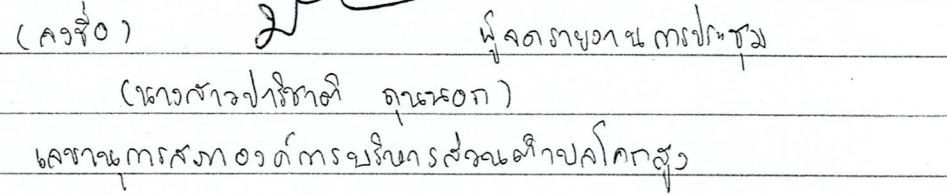 (ลงชื่อ) ผู้จดรายงานการประชุม
(นางสาวปาริชาติ ดุนนอก)
เลขานุการสภาองค์การบริหารส่วนตำบลโคกสูง